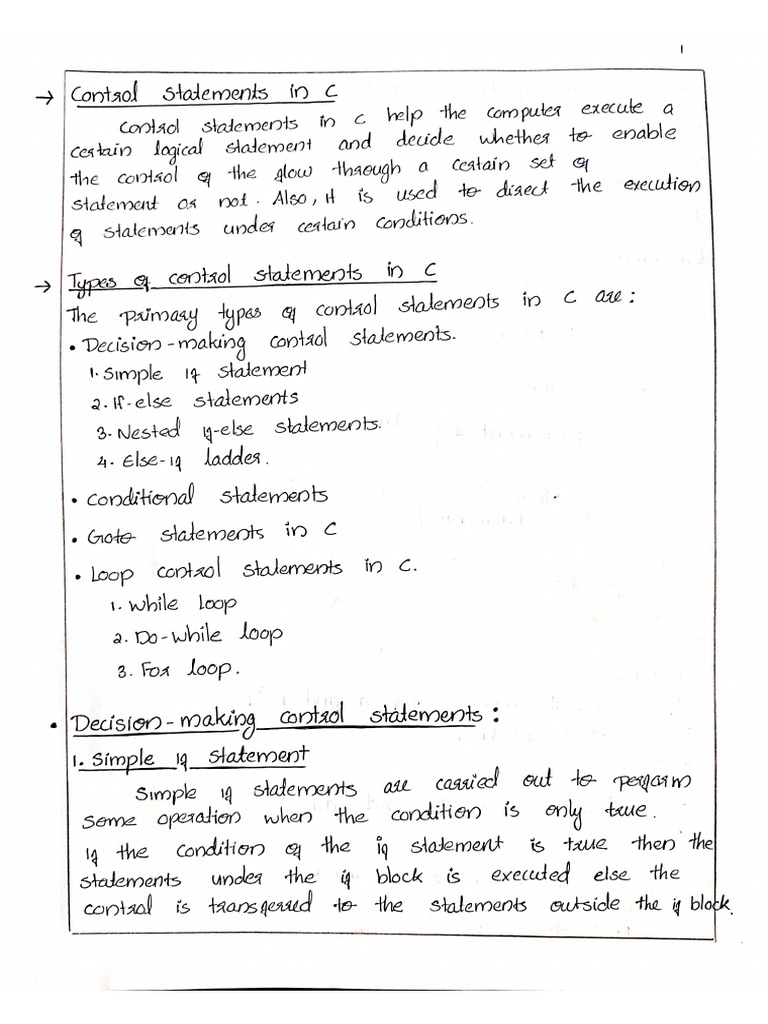 1
→ Control statements in C
Control statements in C help the computer execute a
certain logical statement and decide whether to enable
the control of the flow through a certain set of
statement or not. Also, it is used to direct the execution
of statements under certain conditions.
→ Types of control statements in C
The primary types of control statements in C are:
• Decision-making control statements.
1. Simple if statement
2. If-else statements
3. Nested if-else statements.
4. Else-if ladder.
• Conditional statements
• Goto statements in C
• Loop control statements in C.
1. While loop
2. Do-while loop
3. For loop.
• Decision-making control statements:
1. Simple if statement
Simple if statements are carried out to perform
some operation when the condition is only true.
If the condition of the if statement is true then the
statements under the if block is executed else the
control is transferred to the statements outside the if block.